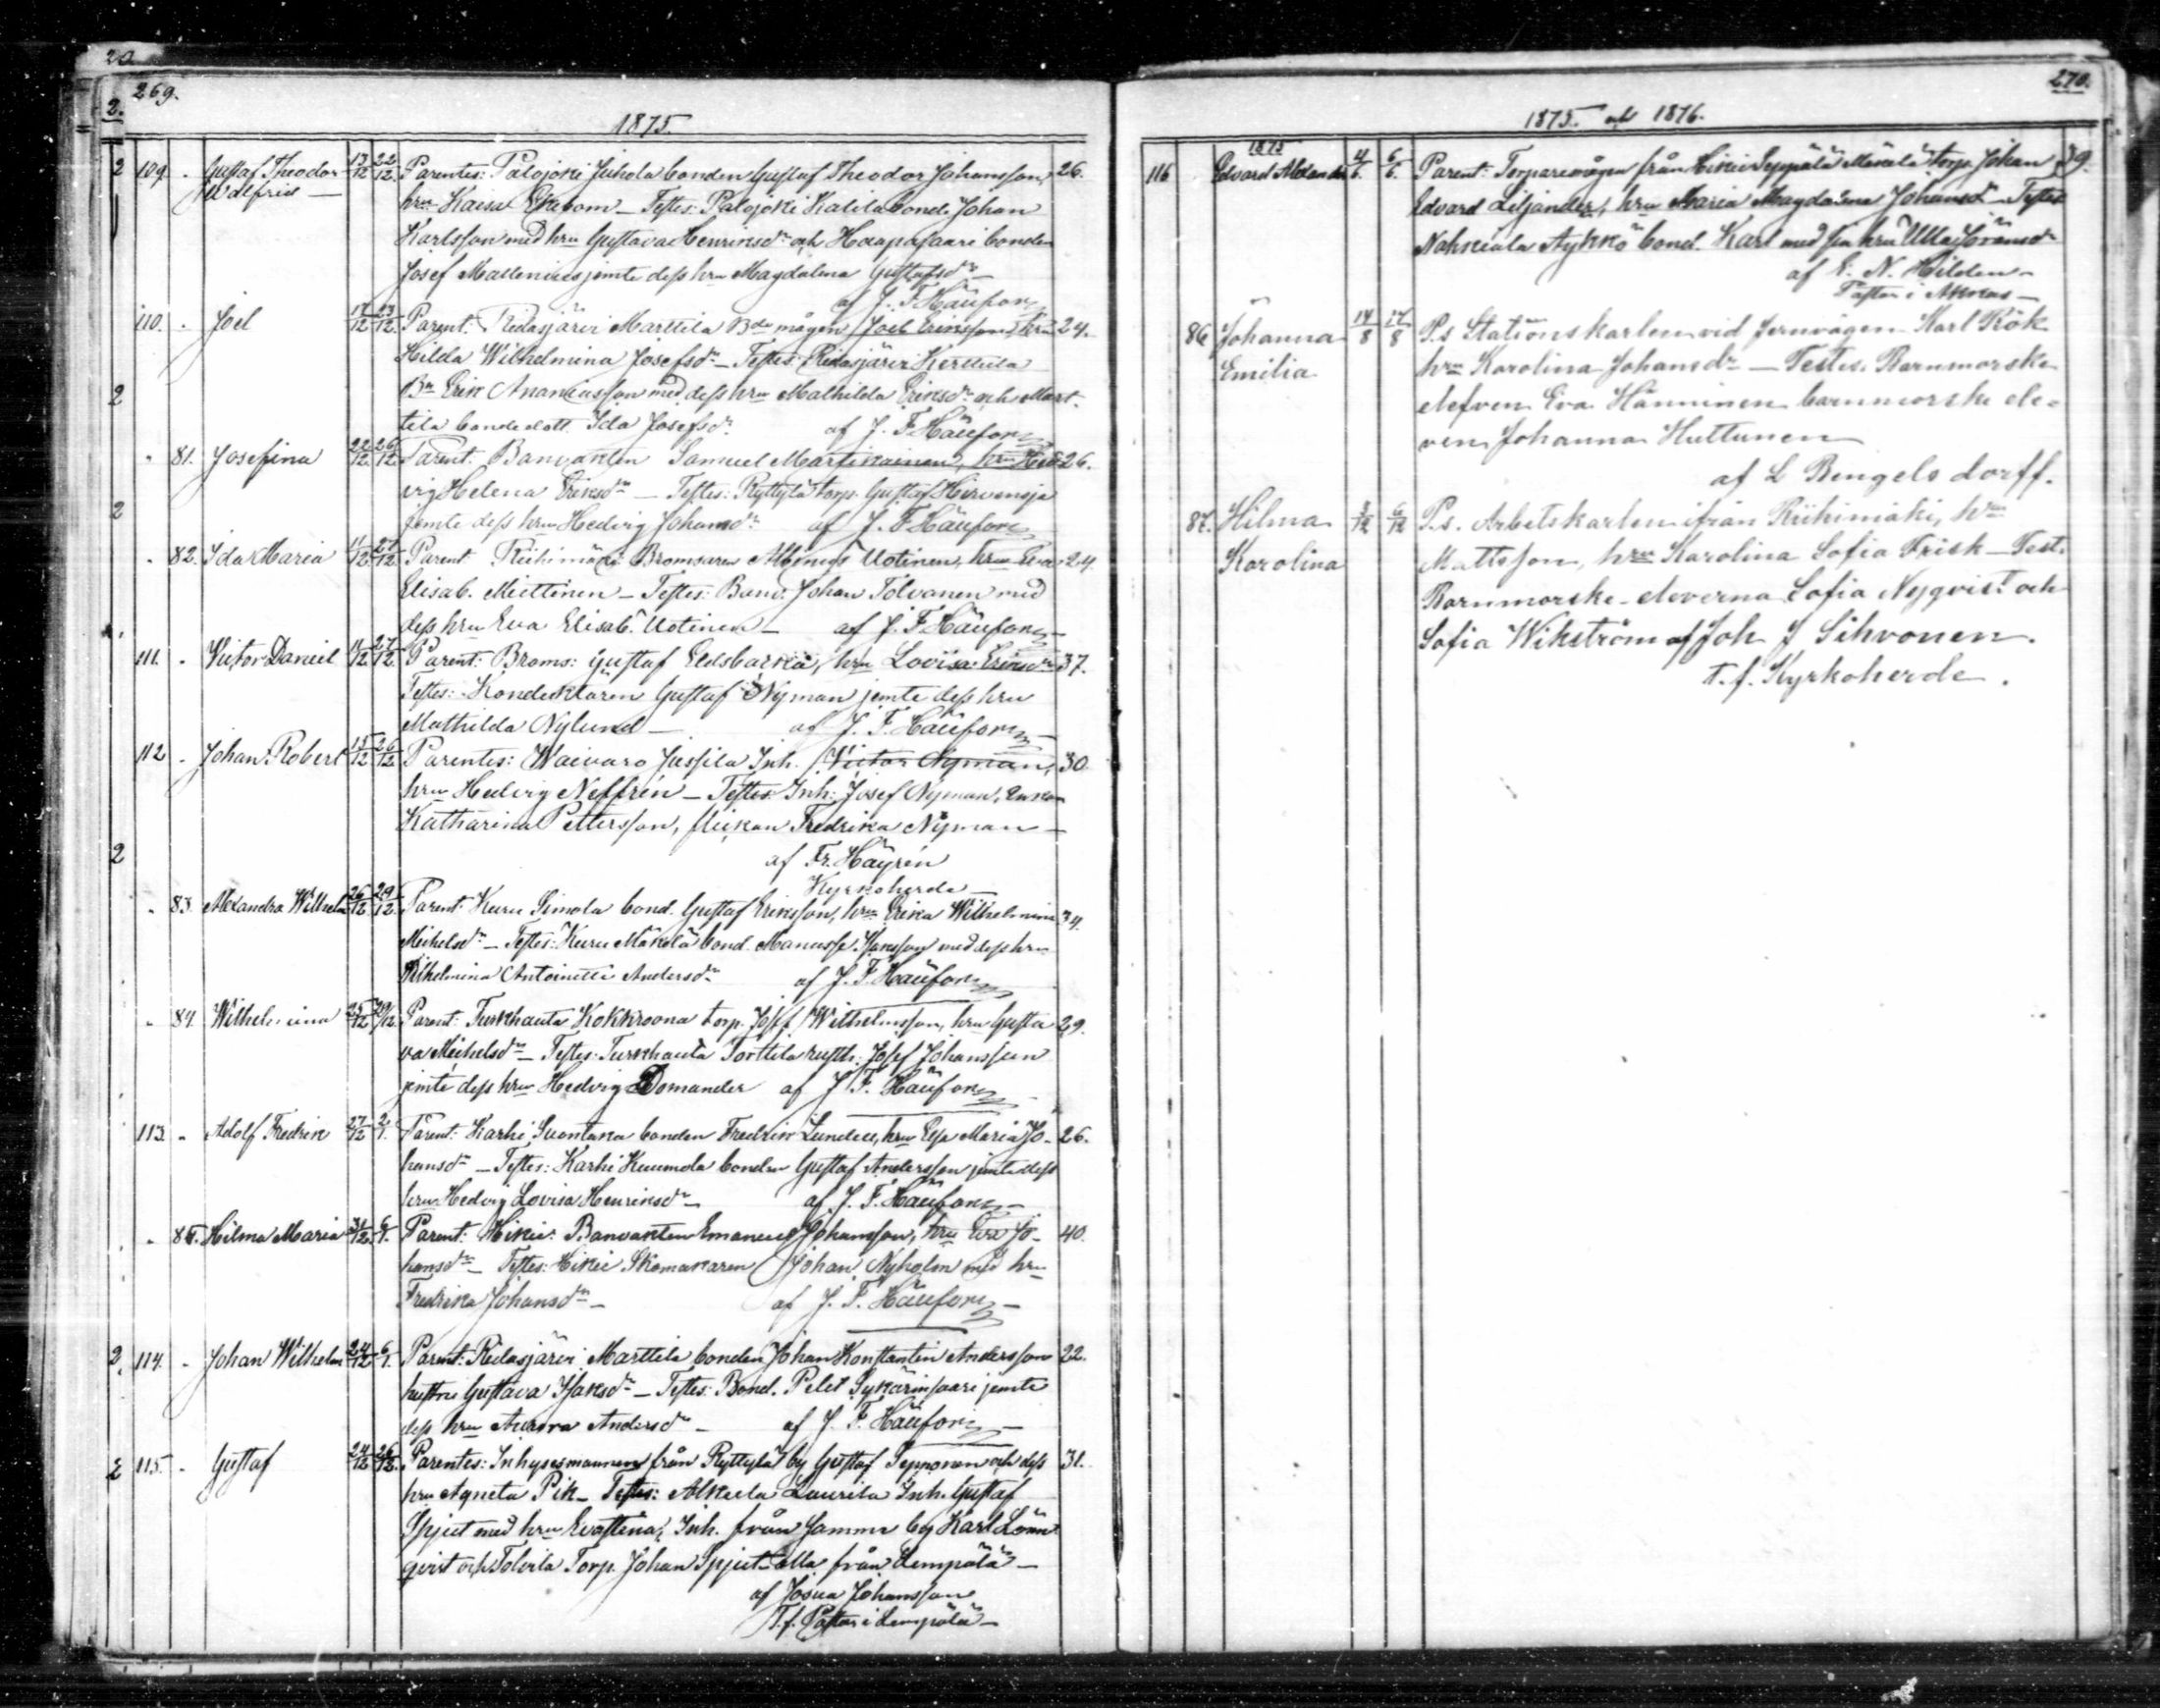 20
269.
2.
1875.
2 109. - Gustaf Theodor 13/12 22/12. Parentes: Palojoki Juhola bonden Gustaf Theodor Johansson, 26.
Walfrid — hru Kaisa Ekebom — Testes: Palojoki Kalila bond. Johan
Karlsson med hru Gustava Henriksdr och Haapasaari bonden
Josef Mallenius jemte dess hru Magdalena Gustafsdr —
af J. F. Häufon
110. - Joel 17/12 23/12. Parent: Ridasjärvi Marttila Bde mågen Joel Eriksson, hru 24.
Hilda Wilhelmina Josefsdr — Testes: Ridasjärvi Kerttula
2 Bn Erik Ananiasson med dess hru Mathilda Eriksdr och Mart-
tila bondedott. Ida Josefsdr af J. F. Häufon
- 81. Josefina 22/12. 26/12. Parent. Banvakten Samuel Martikainen, hru Hed- 26.
vig Helena Eriksdr — Testes: Ryttylä torp. Gustaf Hirvenoja
2 jemte dess hru Hedvig Johansdr af J. F. Häufon
- 82. Ida Maria 11/12. 27/12. Parent Riihimäki Bromsaren Uotinen, hru Eva 24.
Elisab. Miettinen — Testes: Banv. Johan Tolvanen med
dess hru Eva Elisab. Uotinen — af J. F. Häufon —
111. - Victor Daniel 11/12 27/12 Parent: Broms: Gustaf hru Lovisa Eriksdr 37.
Testes: Konduktören Gustaf Nyman jemte dess hru
Mathilda Nylund — af J. F. Häufon —
112. - Johan Robert 15/12 26/12 Parentes: Waivaro Jussila Inh. Victor Nyman, 30.
hru Hedvig Neffrén — Testes: Inh: Josef Nyman, Enkan
Katharina Pettersson, flickan Fredrika Nyman —
2 af Fr. Häyrén
Kyrkoherde —
- 83. Alexandra Wilhelm 26/12 29/12. Parent: Kuru Simola bond. Gustaf Eriksson, hru Erika Wilhelmina 34.
Mickelsdr — Testes: Kuru Mäkelä bond. Manasse Isaksson med dess hru
Wilhelmina Antoinette Andersdr af J. F. Häufon
- 84. Wilhelmina 25/12 29/12. Parent: Turkhauta Kokkroona torp. Josef Wilhelmsson, hru Gusta 29.
va Mickelsdr — Testes: Turkhauta Torttila rusth. Josef Johansson
jemte dess hru Hedvig Domander af J. F. Häufon
113. - Adolf Fredrik 27/12 2/1. Parent: Karhi Suontaka bonden Fredrik Lundell, hru Elsa Maria Jo- 26.
hansdr — Testes: Karhi Kuumola bonden Gustaf Andersson jemte dess
hru Hedvig Lovisa Henriksdr — af J. F. Häufon —
- 85. Hilma Maria 31/12. 6/1. Parent: Hikiä Banvakten Emanuel Johansson, hru Eva Jo- 40.
hansdr — Testes: Hikiä Skomakaren Johan Nyholm med hru
Fredrika Johansdr — af J. F. Häufon —
2, 114. - Johan Wilhelm 24/12 6/1. Parent: Ridasjärvi Marttila bonden Johan Konstantin Andersson 22.
hustru Gustava Isaksdr — Testes: Bond. Pelit Sykärinsaari jemte
dess hru Aurora Andersdr — af J. F. Häufon —
2 115. - Gustaf 24/12 26/12. Parentes: Inhysesmannen från Ryttylä by Gustaf Seponen och dess 31.
hru Agneta Pik — Testes: Alkula Laurila Inh. Gustaf
Spjut med hru Evastina, Inh. från samma by Karl Lönn
qvist och Tolvila Torp. Johan Spjut alla från Lempälä —
af Josua Johansson
T.f. Pastor i Lempälä —
270.
1875. och 1876.
1875
116 Edvard Alexander 4/6. 6/6. Parent: Torparemågen från Hikiä Seppälä Mäkelä torp. Johan 39.
Edvard Liljander, hru Maria Magdalena Johansd — Testes
Nahkiala Äykkö bond. Karl med sin hru Ulla Göransdr
af E. N. Hilden —
Pastor i Akkas —
86 Johanna 14/8 17/8 P.s Stationskarlen vid Jernvägen Karl Rök
Emilia hru Karolina Johansdr — Testes. Barnmorske
elefven Eva Hänninen barnmorske ele-
ven Johanna Huttunen
af L Bengelsdorff.
87. Hilma 3/12 6/12 P.s. Arbetskarlen ifrån Riihimäki, Hrm
Karolina Mattsson, hru Karolina Sofia Frisk — Test.
Barnmorske-eleverna Sofia Nyqvist och
Sofia Wikström af Joh J Sihvonen.
t.f. Kyrkoherde.